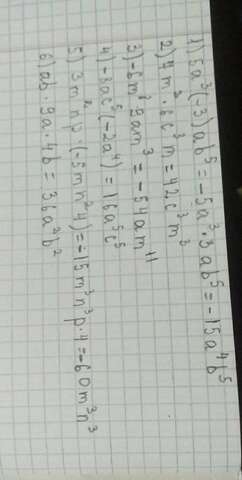 1) 5a³(-3)ab⁵=-5a³·3ab⁵=-15a⁴b⁵
2) 7m³·6c³m=42c³m³
3) -6m⁸·9am³=-54am¹¹
4) -8ac⁵(-2a⁴)=16a⁵c⁵
5) 3m²np·(-5mn²4)=-15m³n³p·4=-60m³n³
6) ab·9a·4b=36a²b²